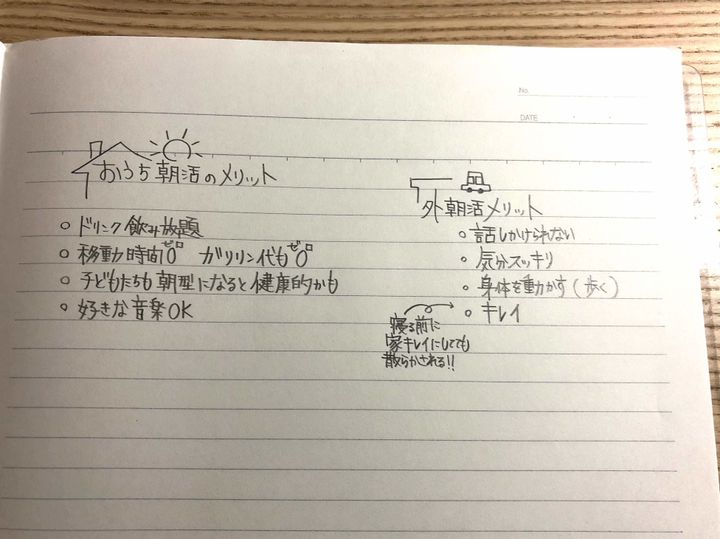 No.
DATE
おうち朝活のメリット
○ ドリンク飲み放題
○ 移動時間0 ゼロ ガソリン代も0 ゼロ
○ 子どもたちも朝型になると健康的かも
○ 好きな音楽OK
外朝活メリット
○ 話しかけられない
○ 気分スッキリ
○ 身体を動かす(歩く)
○ キレイ
寝る前に
家キレイにしてても
散らかされる!!